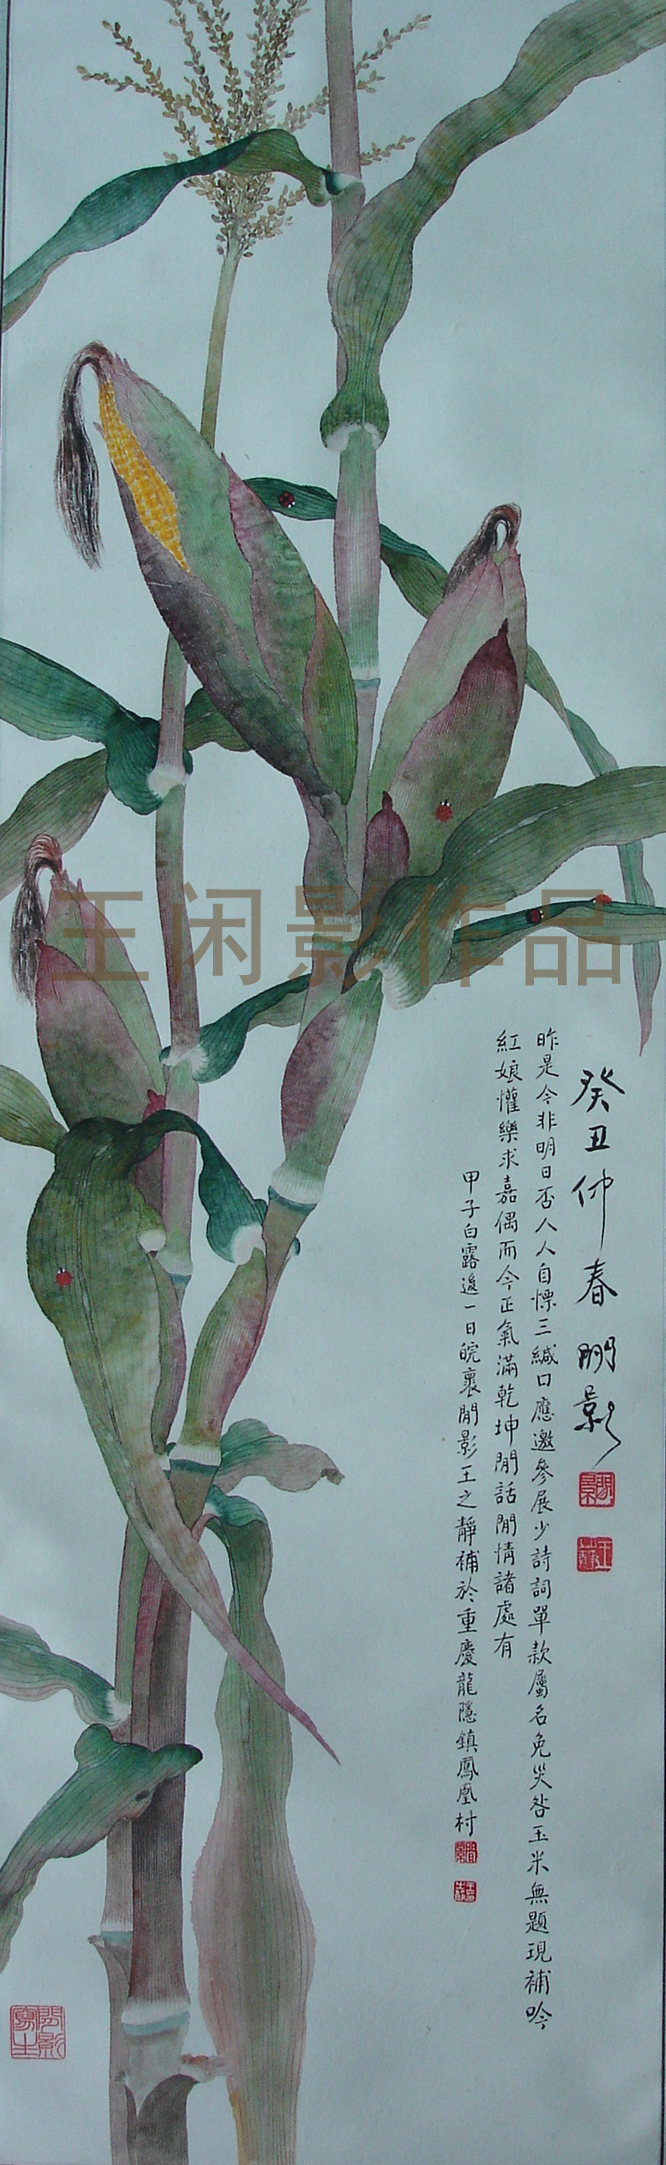 癸丑仲春閒影
昨是今非明日否人人自慓三緘口應邀參展少詩詞單款屬名免災咎玉米無題現補吟
紅娘懽樂求嘉偶而今正氣滿乾坤閒話閒情諸處有
甲子白露後一日皖襄閒影王之靜補於重慶龍隱鎮鳳凰村
王闲影作品